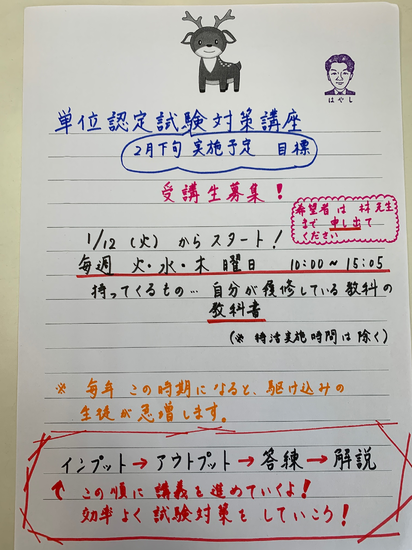 はやし
単位認定試験対策講座
2月下旬 実施予定 目標
受講生募集!
希望者は 林先生
まで 申し出て
ください
1/12 (火) からスタート!
毎週 火・水・木 曜日 10:00~15:05
持ってくるもの… 自分が履修している教科の
教科書
(※ 特活実施時間は除く)
※ 毎年 この時期になると、駆け込みの
生徒が急増します。
インプット→アウトプット→答練→解説
↑ この順に講義を進めていくよ!
効率よく試験対策をしていこう!